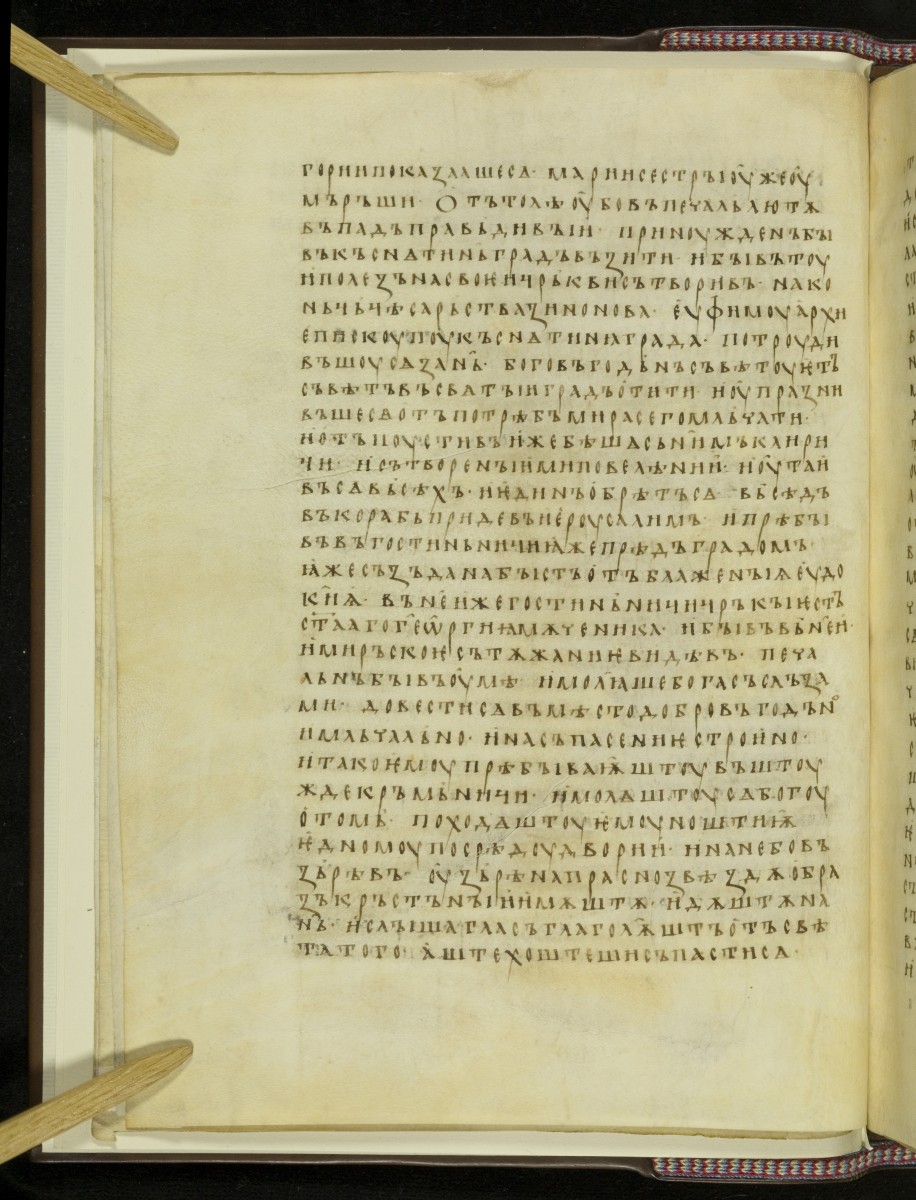 гории показаашесѧ· марии сестры оу҅же оу҅
мьръши· Отътолѣ оу҅бо въ печаль лютѫ
въпадъ правьдивыи҅· приноужденъ бы
въ къснѧтинь градъ възити· и҅ бывъ тоу
и҅ полезънаꙗ свои҅ цръкви сътворивъ· нако
ньчь чѣсарьства зинонова· еу҅фимоу а҅рхи
епискоупоу къснѧтинꙗ града· потроуди
въшоу сѧ за нь҅· богов'годьнъ съвѣтоу ѥстъ
съвѣтъ въ свѧтыи градъ о҅тити· и҅ оу҅празни
въше сѧ отъ потрѣбъ мира сего мльчати·
и҅ отъпоустивъ и҅же бѣшѧ съ нимъ клири
чи· и҅ сътворены и҅ми повелѣнии҅· и҅ оу҅таи҅
въ сѧ вьсѣхъ· и ѥдинъ о҅брѣтъ сѧ· вьсѣдъ
въ корабь приде въ и҅ероусалимъ· и҅ прѣбы
въ въ гостиньници ꙗже прѣдъ градомъ
ꙗ҅же съзъдана бысть о҅тъ блаженыѩ еу҅до
киѩ҅· въ неиже гостиньници црькы ѥстъ
ст҃ааго ге҅ѡргиꙗ мѫченика· и҅ бывъ вь неи҅·
и҅ мирьскоѥ сътѫжаниѥ видѣвъ· печа
льнъ бывъ оу҅мѣ и҅ молꙗ҅ше бога съ сльза
ми· довести сѧ въ мѣсто добро въгодьно
и мльчально· и҅ на съпасениѥ строи҅но·
и҅ тако ѥмоу прѣбываѭштоу въ штоу
ждекръмьници· и҅ молѧштоу сѧ богоу
о҅ томь· походѧштоу ѥ҅моу ноштиѭ
ѥ҅дномоу посрѣдоу двора҅· и на небо въ
зьрѣвъ· оу҅зьрѣ напрасно звѣздѫ о҅бра
зъ кръстъныи҅ и҅мѫштѫ· и҅дѫштѫ на
нь҅· и҅ слыша гласъ глаголѭ҅штъ о҅тъ свѣ
та того· а҅ште хоштеши съпасти сѧ·